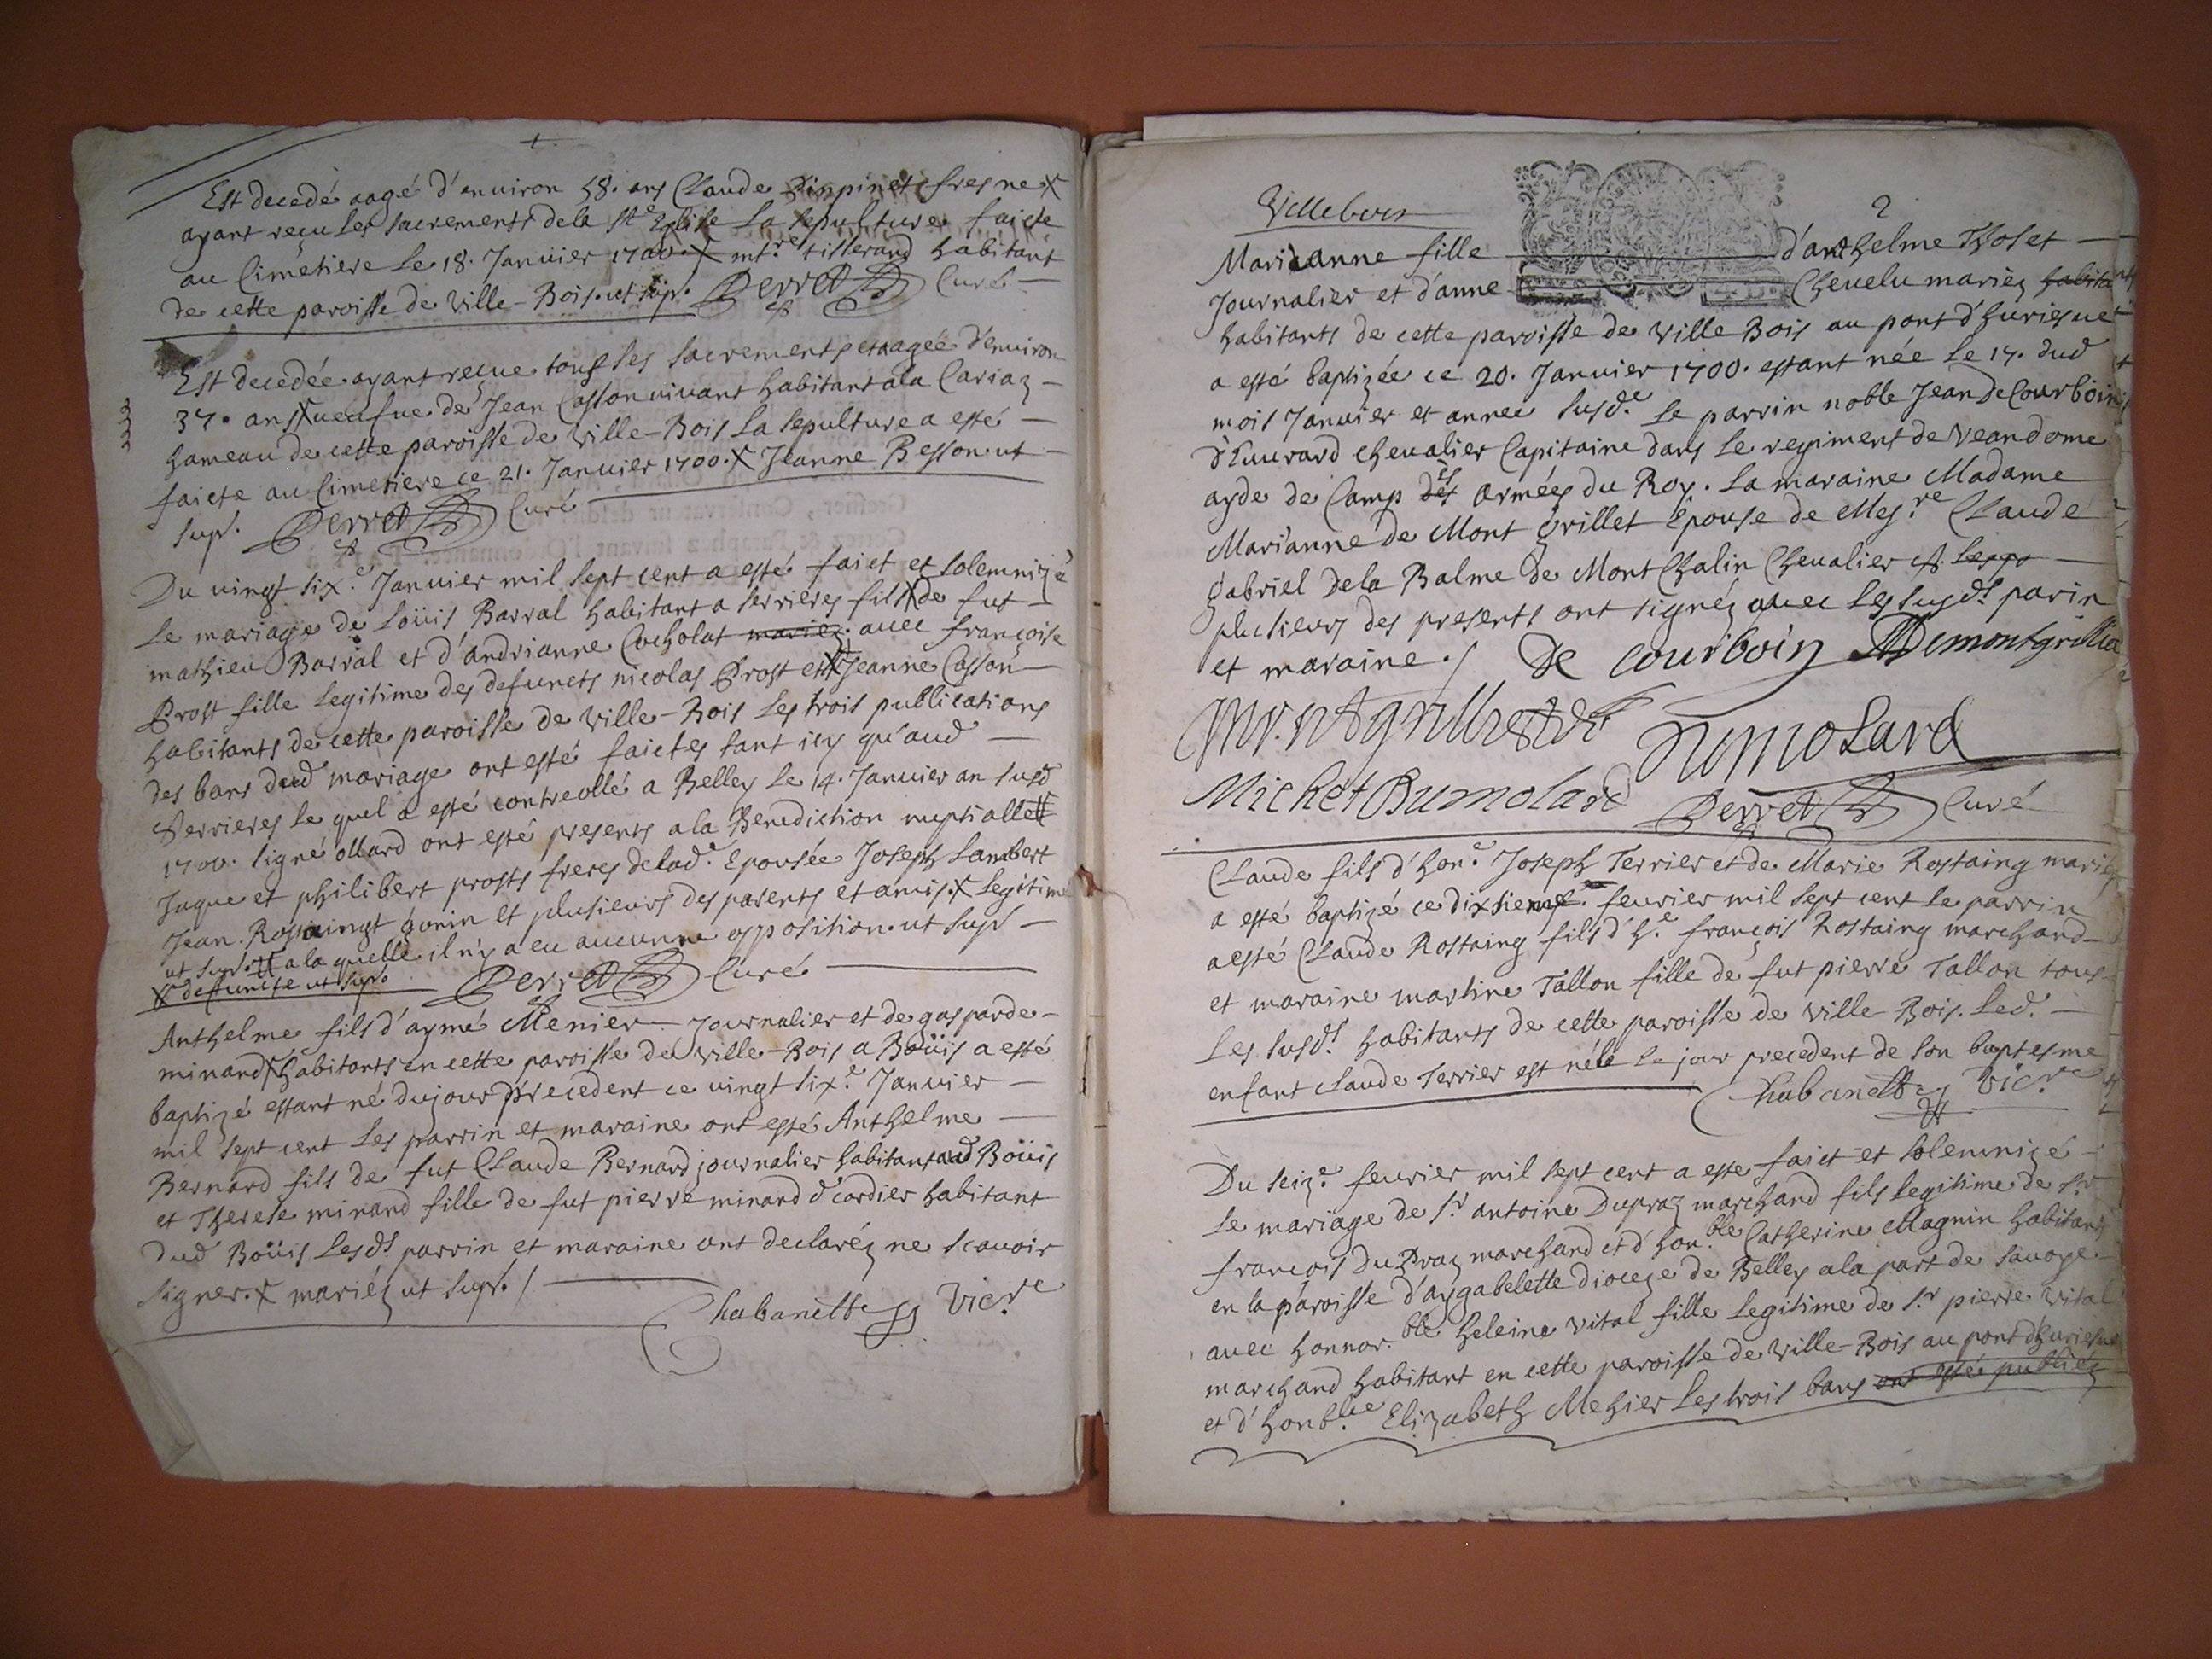 Est decedé aagé d'environ 58. ans Claude Pinpinet fresne X
ayant reçu les sacrements de la Ste Eglise La sepulture faicte
au Cimetiere Le 18. Januier 1700. X mtre tisserand habitant
de cette paroisse de Ville-Bois. ut supr. Perret Curé
Est decedée ayant reçue tous les sacrements et aagée d'enuiron
37. ans X ueufue de Jean Casson uiuant habitant a la Cariaz
hameau de cette paroisse de Ville-Bois La sepulture a esté
faicte au Cimetiere ce 21. Januier 1700. X Jeanne Besson ut
supr. Perret Curé
Du uingt six.e Januier mil sept cent a esté faict et solemnizé
Le mariage de Loüis Barral habitant a Serrieres fils X de fut
mathieu Barral et d'andrianne Cocholat mariez auec françoise
Prost fille legitime des defuncts nicolas Prost et X Jeanne Casson
habitants de cette paroisse de Ville-Bois Les trois publications
des bans dud mariage ont esté faictes tant icy qu'aud
Serrieres le quel a esté controllé a Belley Le 14. Januier an susd
1700. signé ollard ont esté presents a la Benediction nuptialle #
Jaque et philibert prosts freres de lad.e Epousée Joseph Lambert
Jean Rostaingt gonin et plusieurs des parents et amis. X legitime
ut supr. # a la quelle il n'y a eu aucunne opposition. ut supr
X defuncte ut supr. Perret Curé
Anthelme fils d'aymé Menier Journalier et de gasparde
minand X habitants en cette paroisse de Ville-Bois a Boüis a esté
baptizé estant né du jour precedent ce uingt six.e Januier
mil sept cent Les parrin et maraine ont esté Anthelme
Bernard fils de fut Claude Bernard journalier habitant aud Boüis
et Therese minand fille de fut pierre minand cordier habitant
dud Boüis Lesds parrin et maraine ont declaréz ne scauoir
signer. X mariéz ut supr. /
Chabanette Vic.re
Villebois
2
Marianne fille d'anthelme Tholet
Journalier et d'anne Cheuelu mariez habitants
habitants de cette paroisse de Ville Bois au pont d'huriesue
a esté baptizée ce 20. Januier 1700. estant née Le 17. dud
mois Januier et annee susd.e Le parrin noble Jean De Courboin
d'Euurard cheualier Capitaine dans Le regiment de Veandome
ayde de Camp des armées du Roy. La maraine Madame
Marianne de Mont grillet Epouse de Mes.re Claude
gabriel de la Balme de Mont Chalin Cheualier et
plusieurs des presents ont signéz auec Les susds parin
et maraine. / De Courboin Demontgrillia
Dumolard
Michet Dumolard Perret Curé
Claude fils d'hon.e Joseph Terrier et de Marie Rostaing mariez
a esté baptizé ce dixsieme feurier mil sept cent Le parrin
a esté Claude Rostaing fils d'h.e françois Rostaing marchand
et maraine martine Tallon fille de fut pierre Tallon tous
Les susds habitants de cette paroisse de Ville-Bois. Led.
enfant Claude Terrier est né le jour precedent de son baptesme
Chabanette Vic.re
Du seiz.e feurier mil sept cent a este faict et solemnizé
Le mariage de Sr antoine Dupraz marchand fils legitime de Sr
françois Dupraz marchand et d'hon.ble Catherine Magnin habitants
en la paroisse d'aygabelette dioceze de Belley a la part de sauoye
auec honnor.ble heleine Vital fille legitime de Sr pierre Vital
marchand habitant en cette paroisse de Ville-Bois au pont d'huriesue
et d'honb.lle Elizabeth Mehier Les trois bans ont esté publiéz